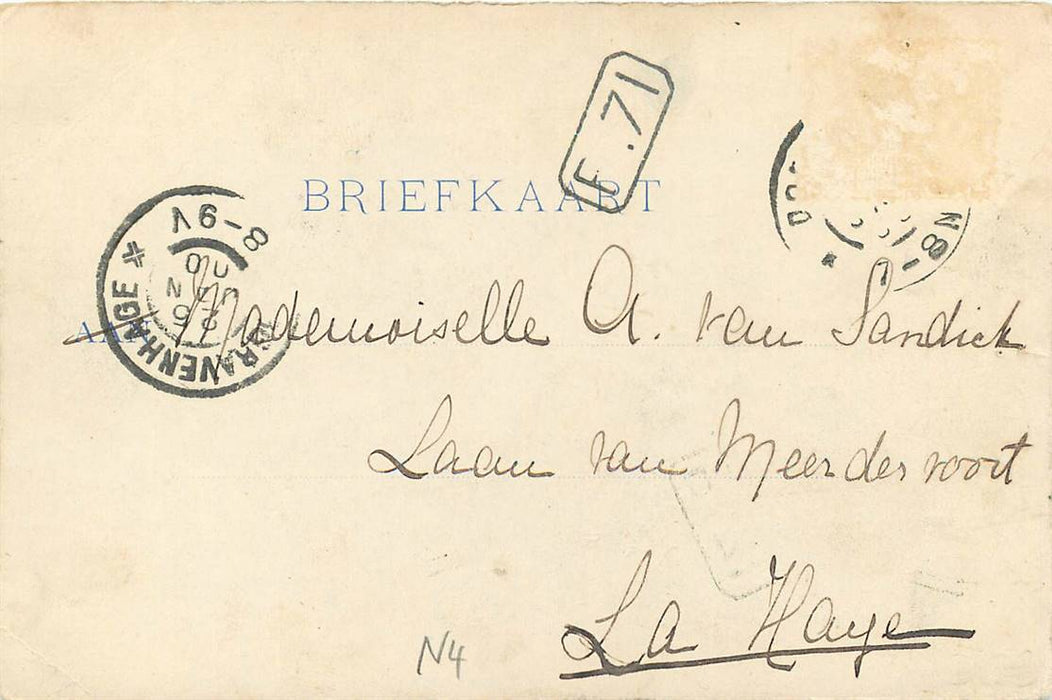 F.71
BRIEFKAART
8-9V
'S GRAVENHAGE
8N
AAN Mademoiselle A. van Sandick
Laan van Meerdervoort
La Haye
N4